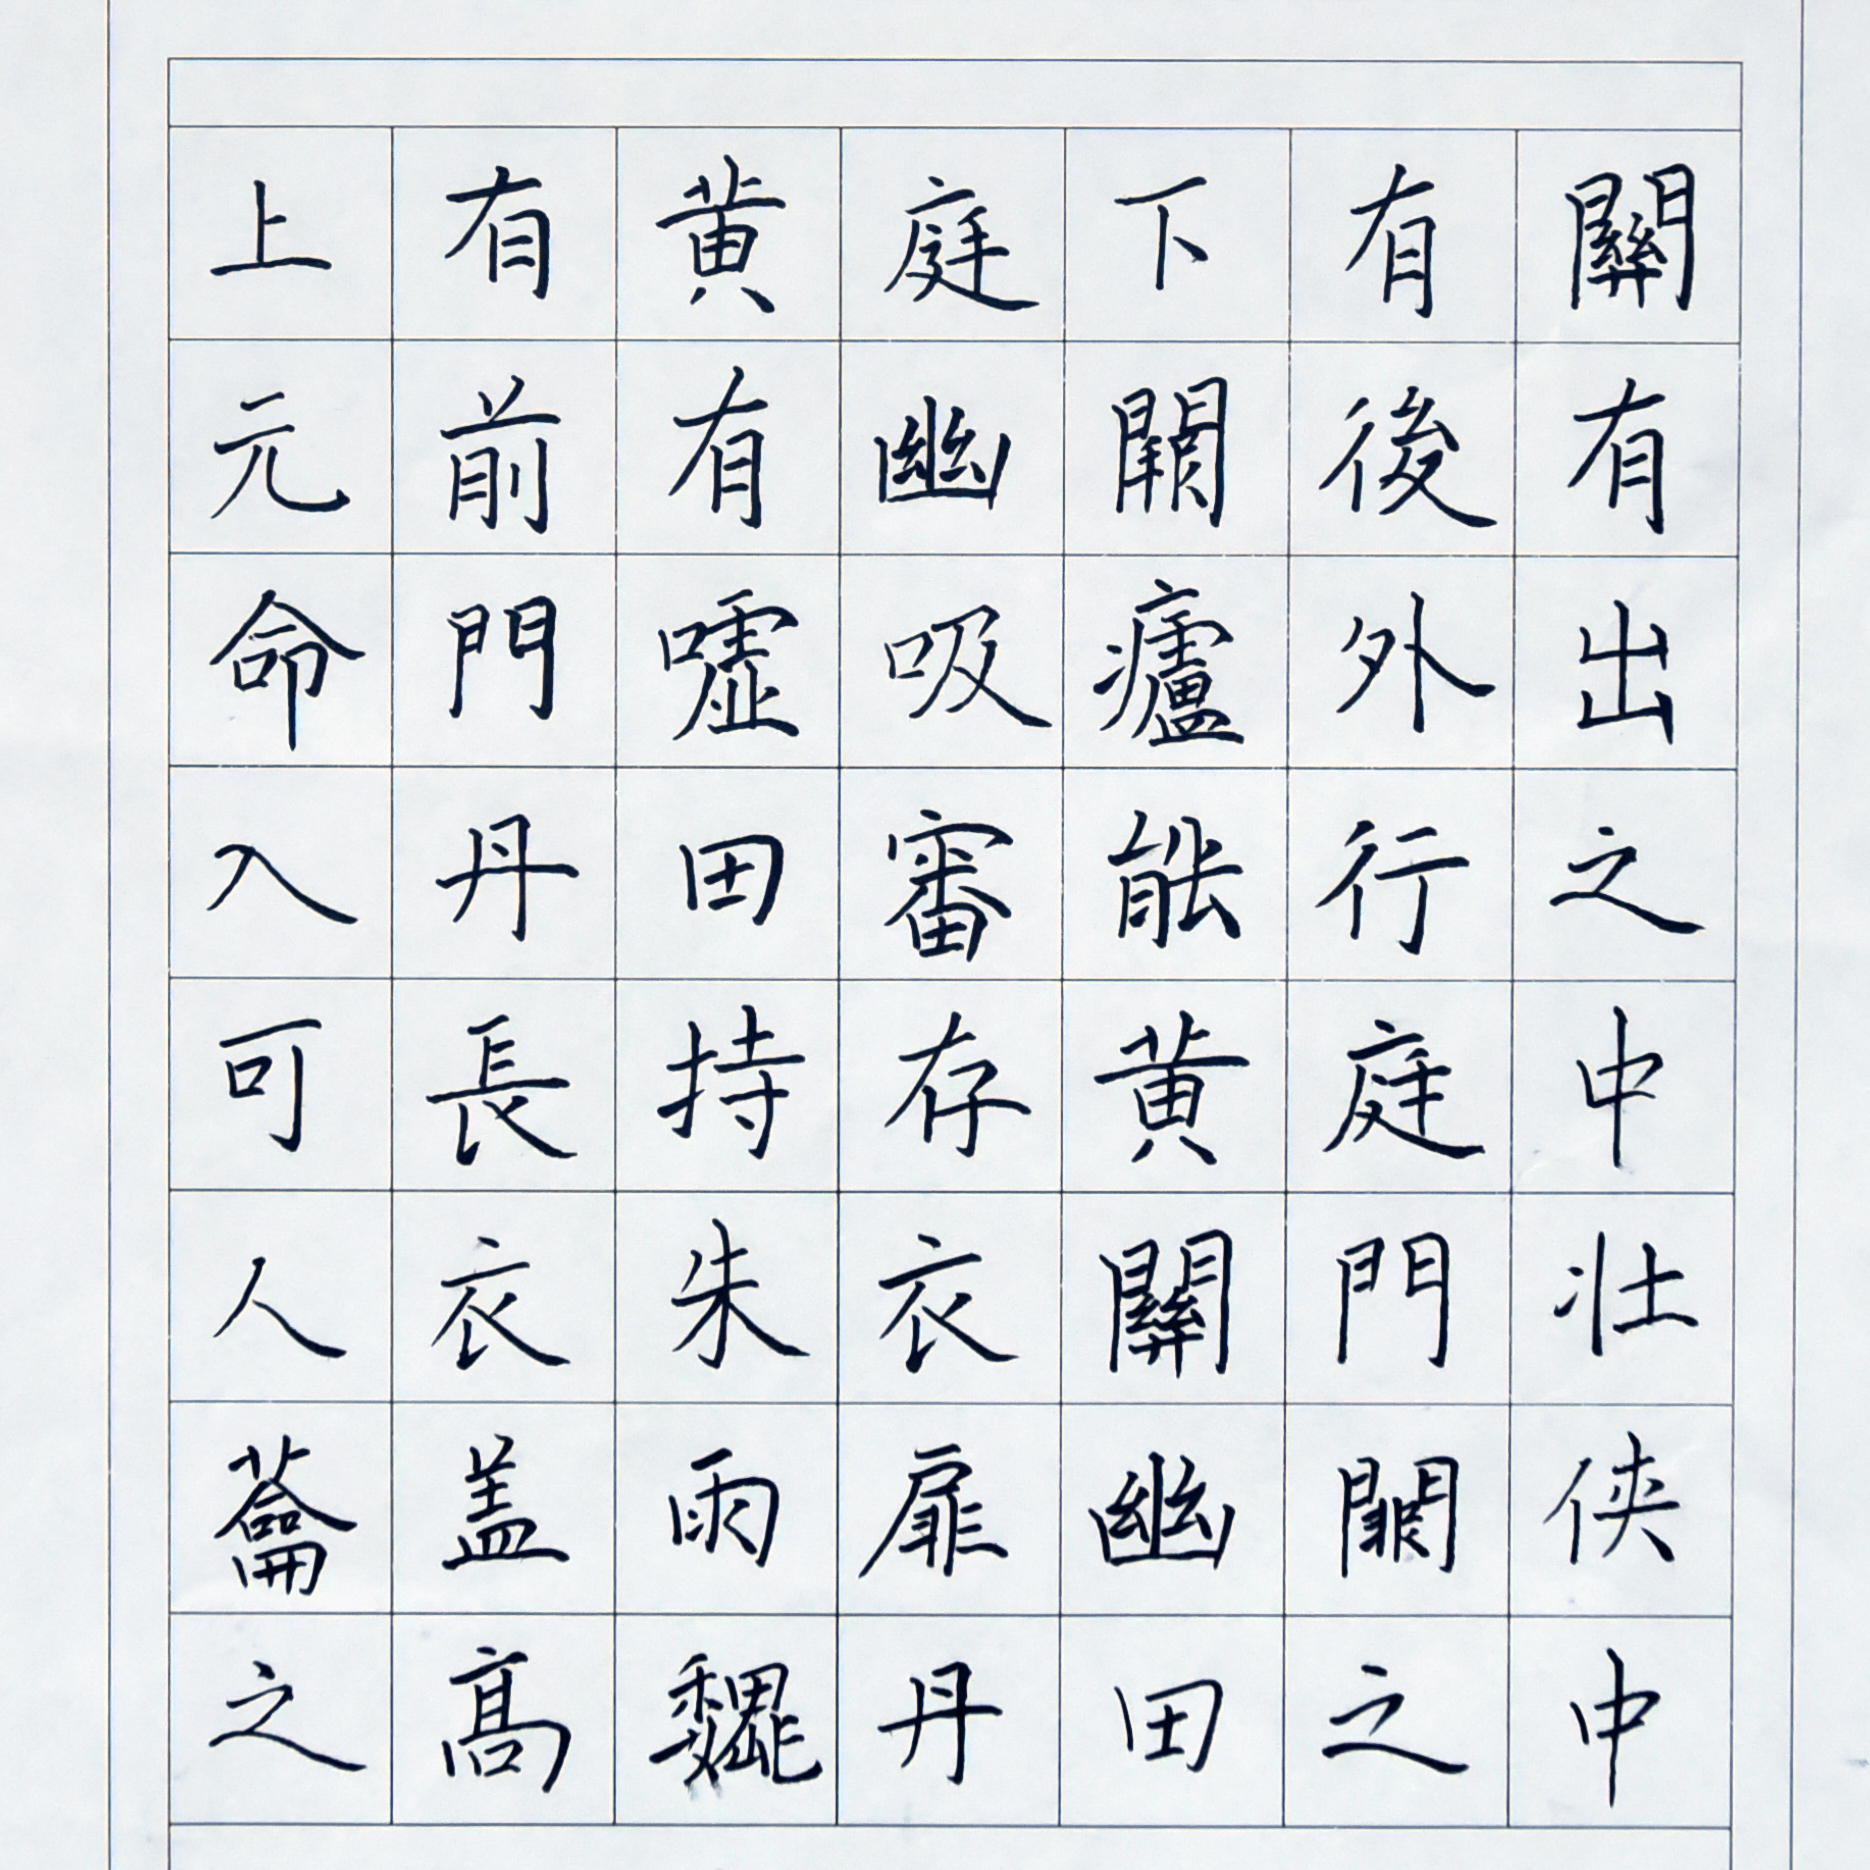 上有黄庭下有關
元前有幽闕後有
命門嘘吸廬外出
入丹田審能行之
可長持存黄庭中
人衣朱衣關門壮
蘥盖兩扉幽闕侠
之高魏丹田之中